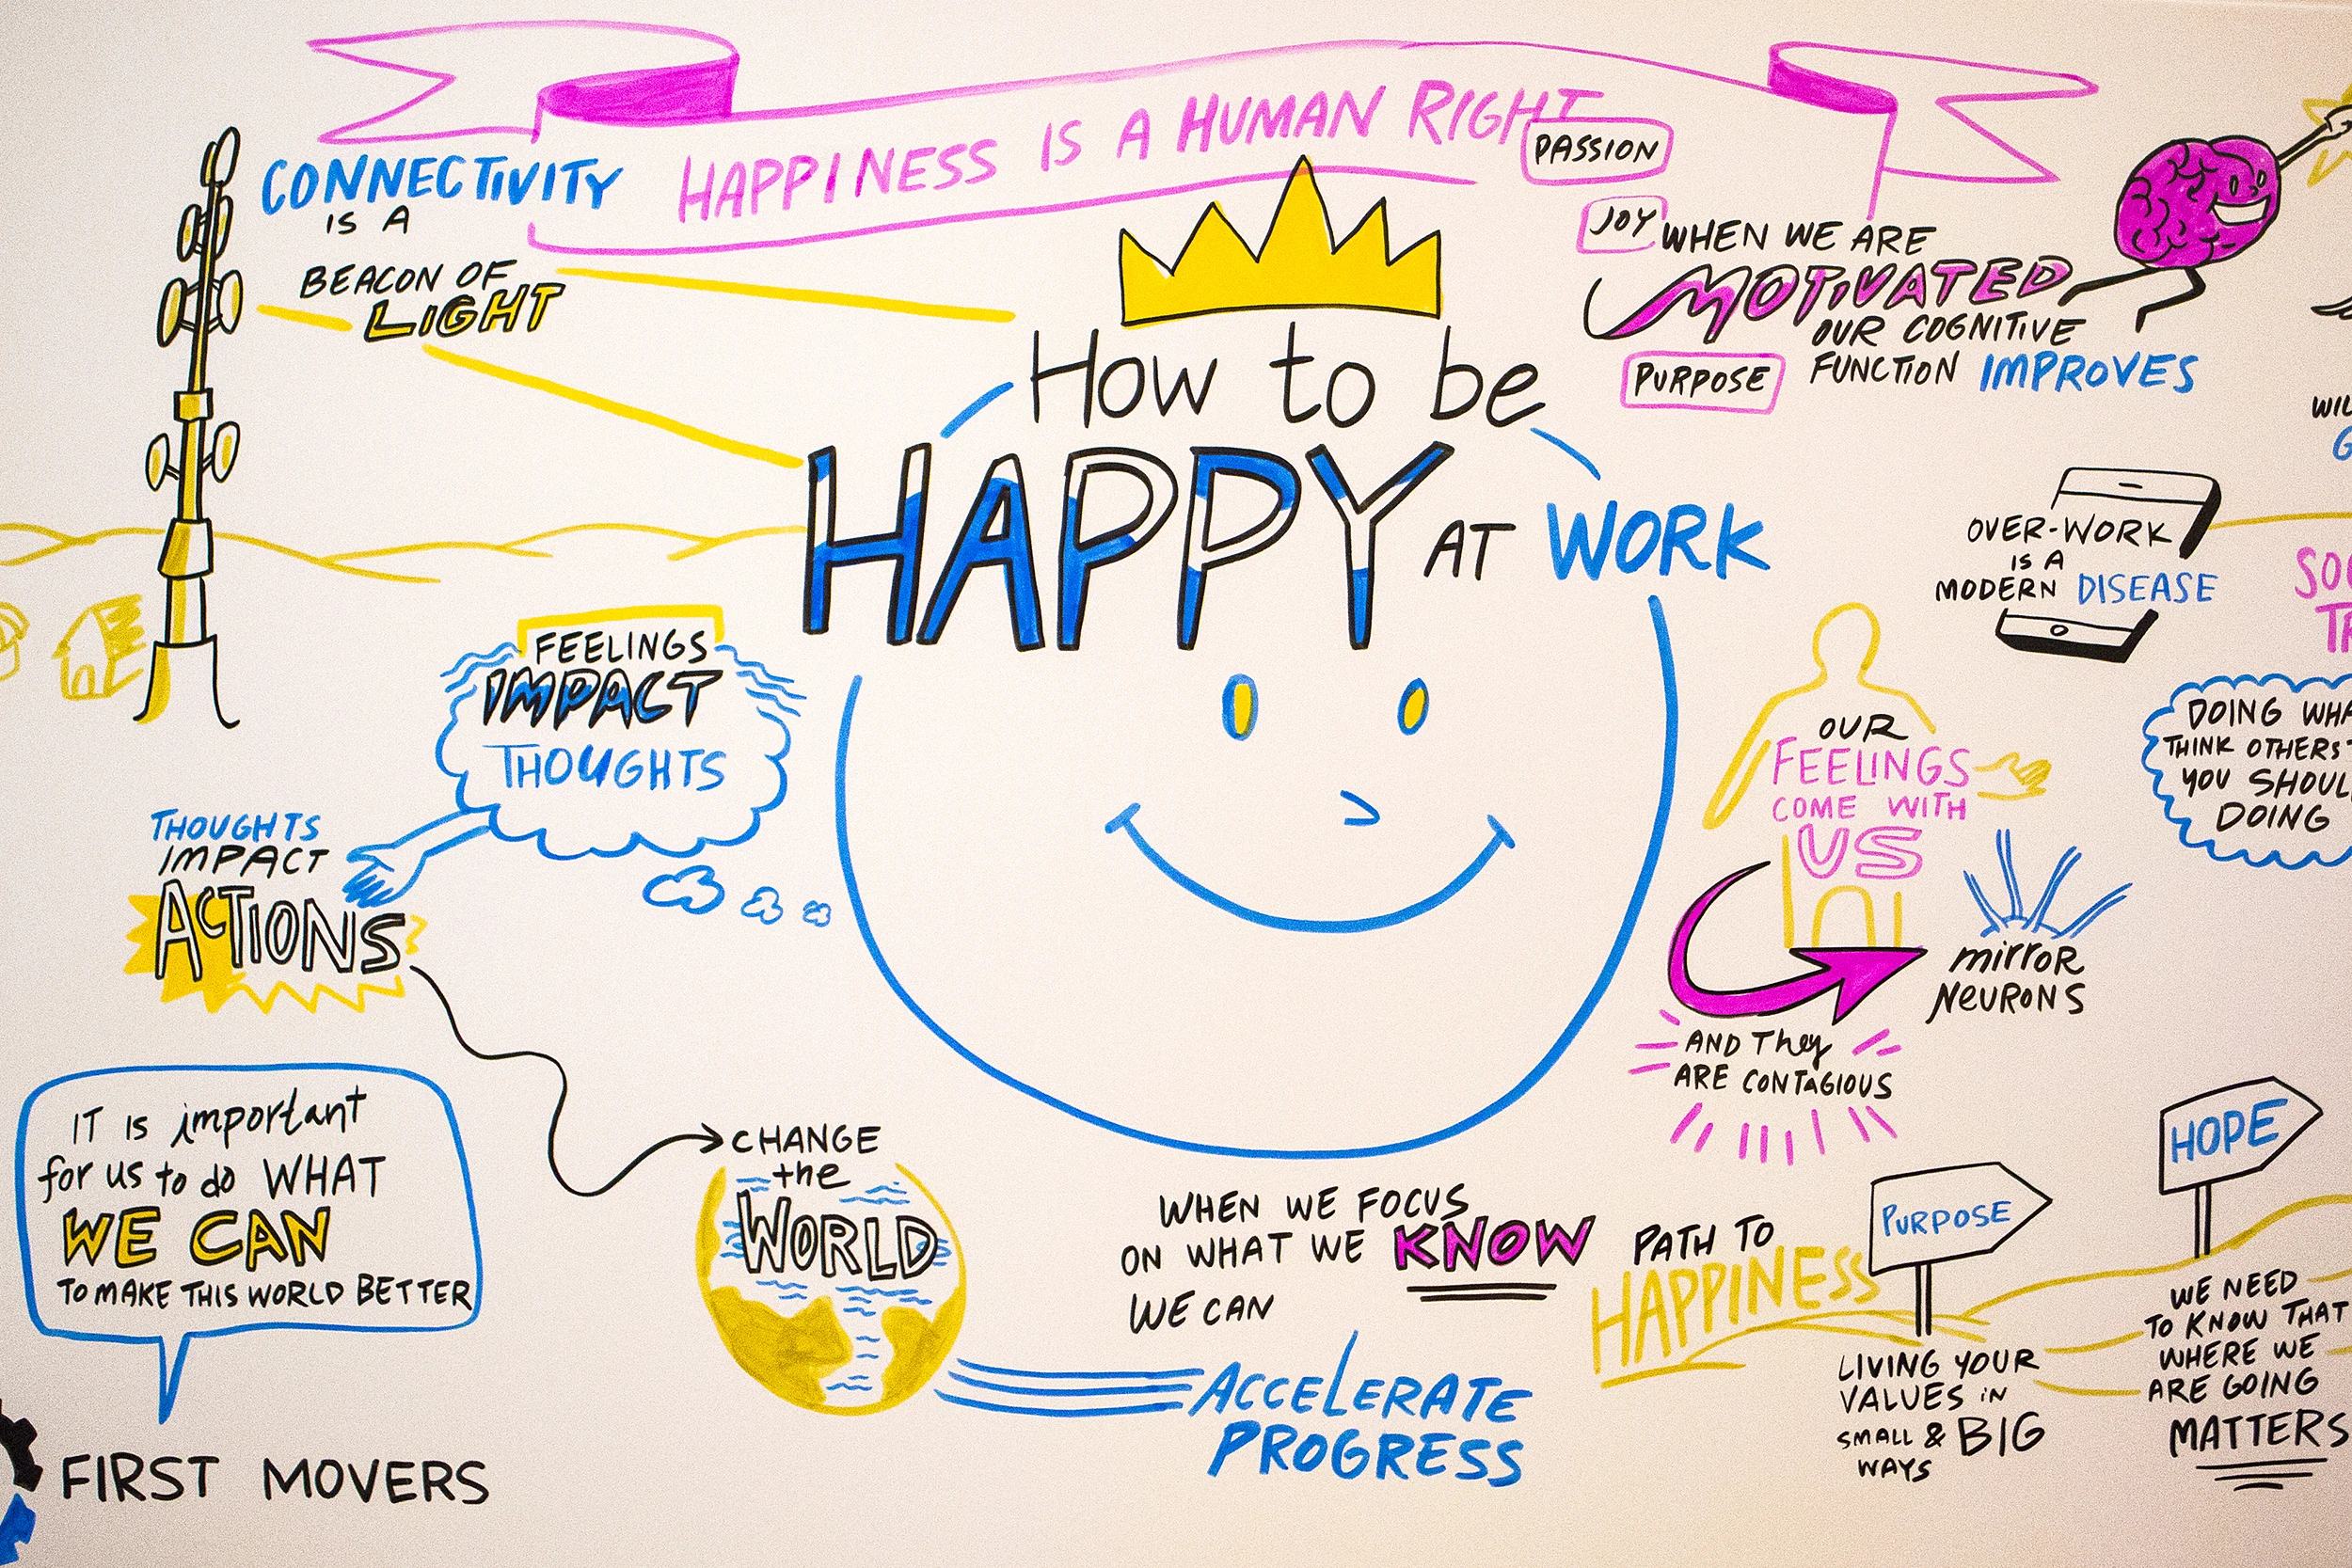 HAPPINESS IS A HUMAN RIGHT
CONNECTIVITY
IS A
BEACON OF
LIGHT
PASSION
JOY
PURPOSE
WHEN WE ARE
MOTIVATED
OUR COGNITIVE
FUNCTION IMPROVES
How to be
HAPPY AT WORK
OVER-WORK
IS A
MODERN DISEASE
FEELINGS
IMPACT
THOUGHTS
THOUGHTS
IMPACT
ACTIONS
OUR
FEELINGS
COME WITH
US
mirror
NEURONS
AND They
ARE CONTAGIOUS
DOING
THINK OTHERS
YOU
DOING
IT IS important
for us to do WHAT
WE CAN
TO MAKE THIS WORLD BETTER
FIRST MOVERS
CHANGE
the
WORLD
WHEN WE FOCUS
ON WHAT WE KNOW
WE CAN
ACCELERATE
PROGRESS
PATH TO
HAPPINESS
PURPOSE
LIVING YOUR
VALUES IN
SMALL & BIG
WAYS
HOPE
WE NEED
TO KNOW THAT
WHERE WE
ARE GOING
MATTERS